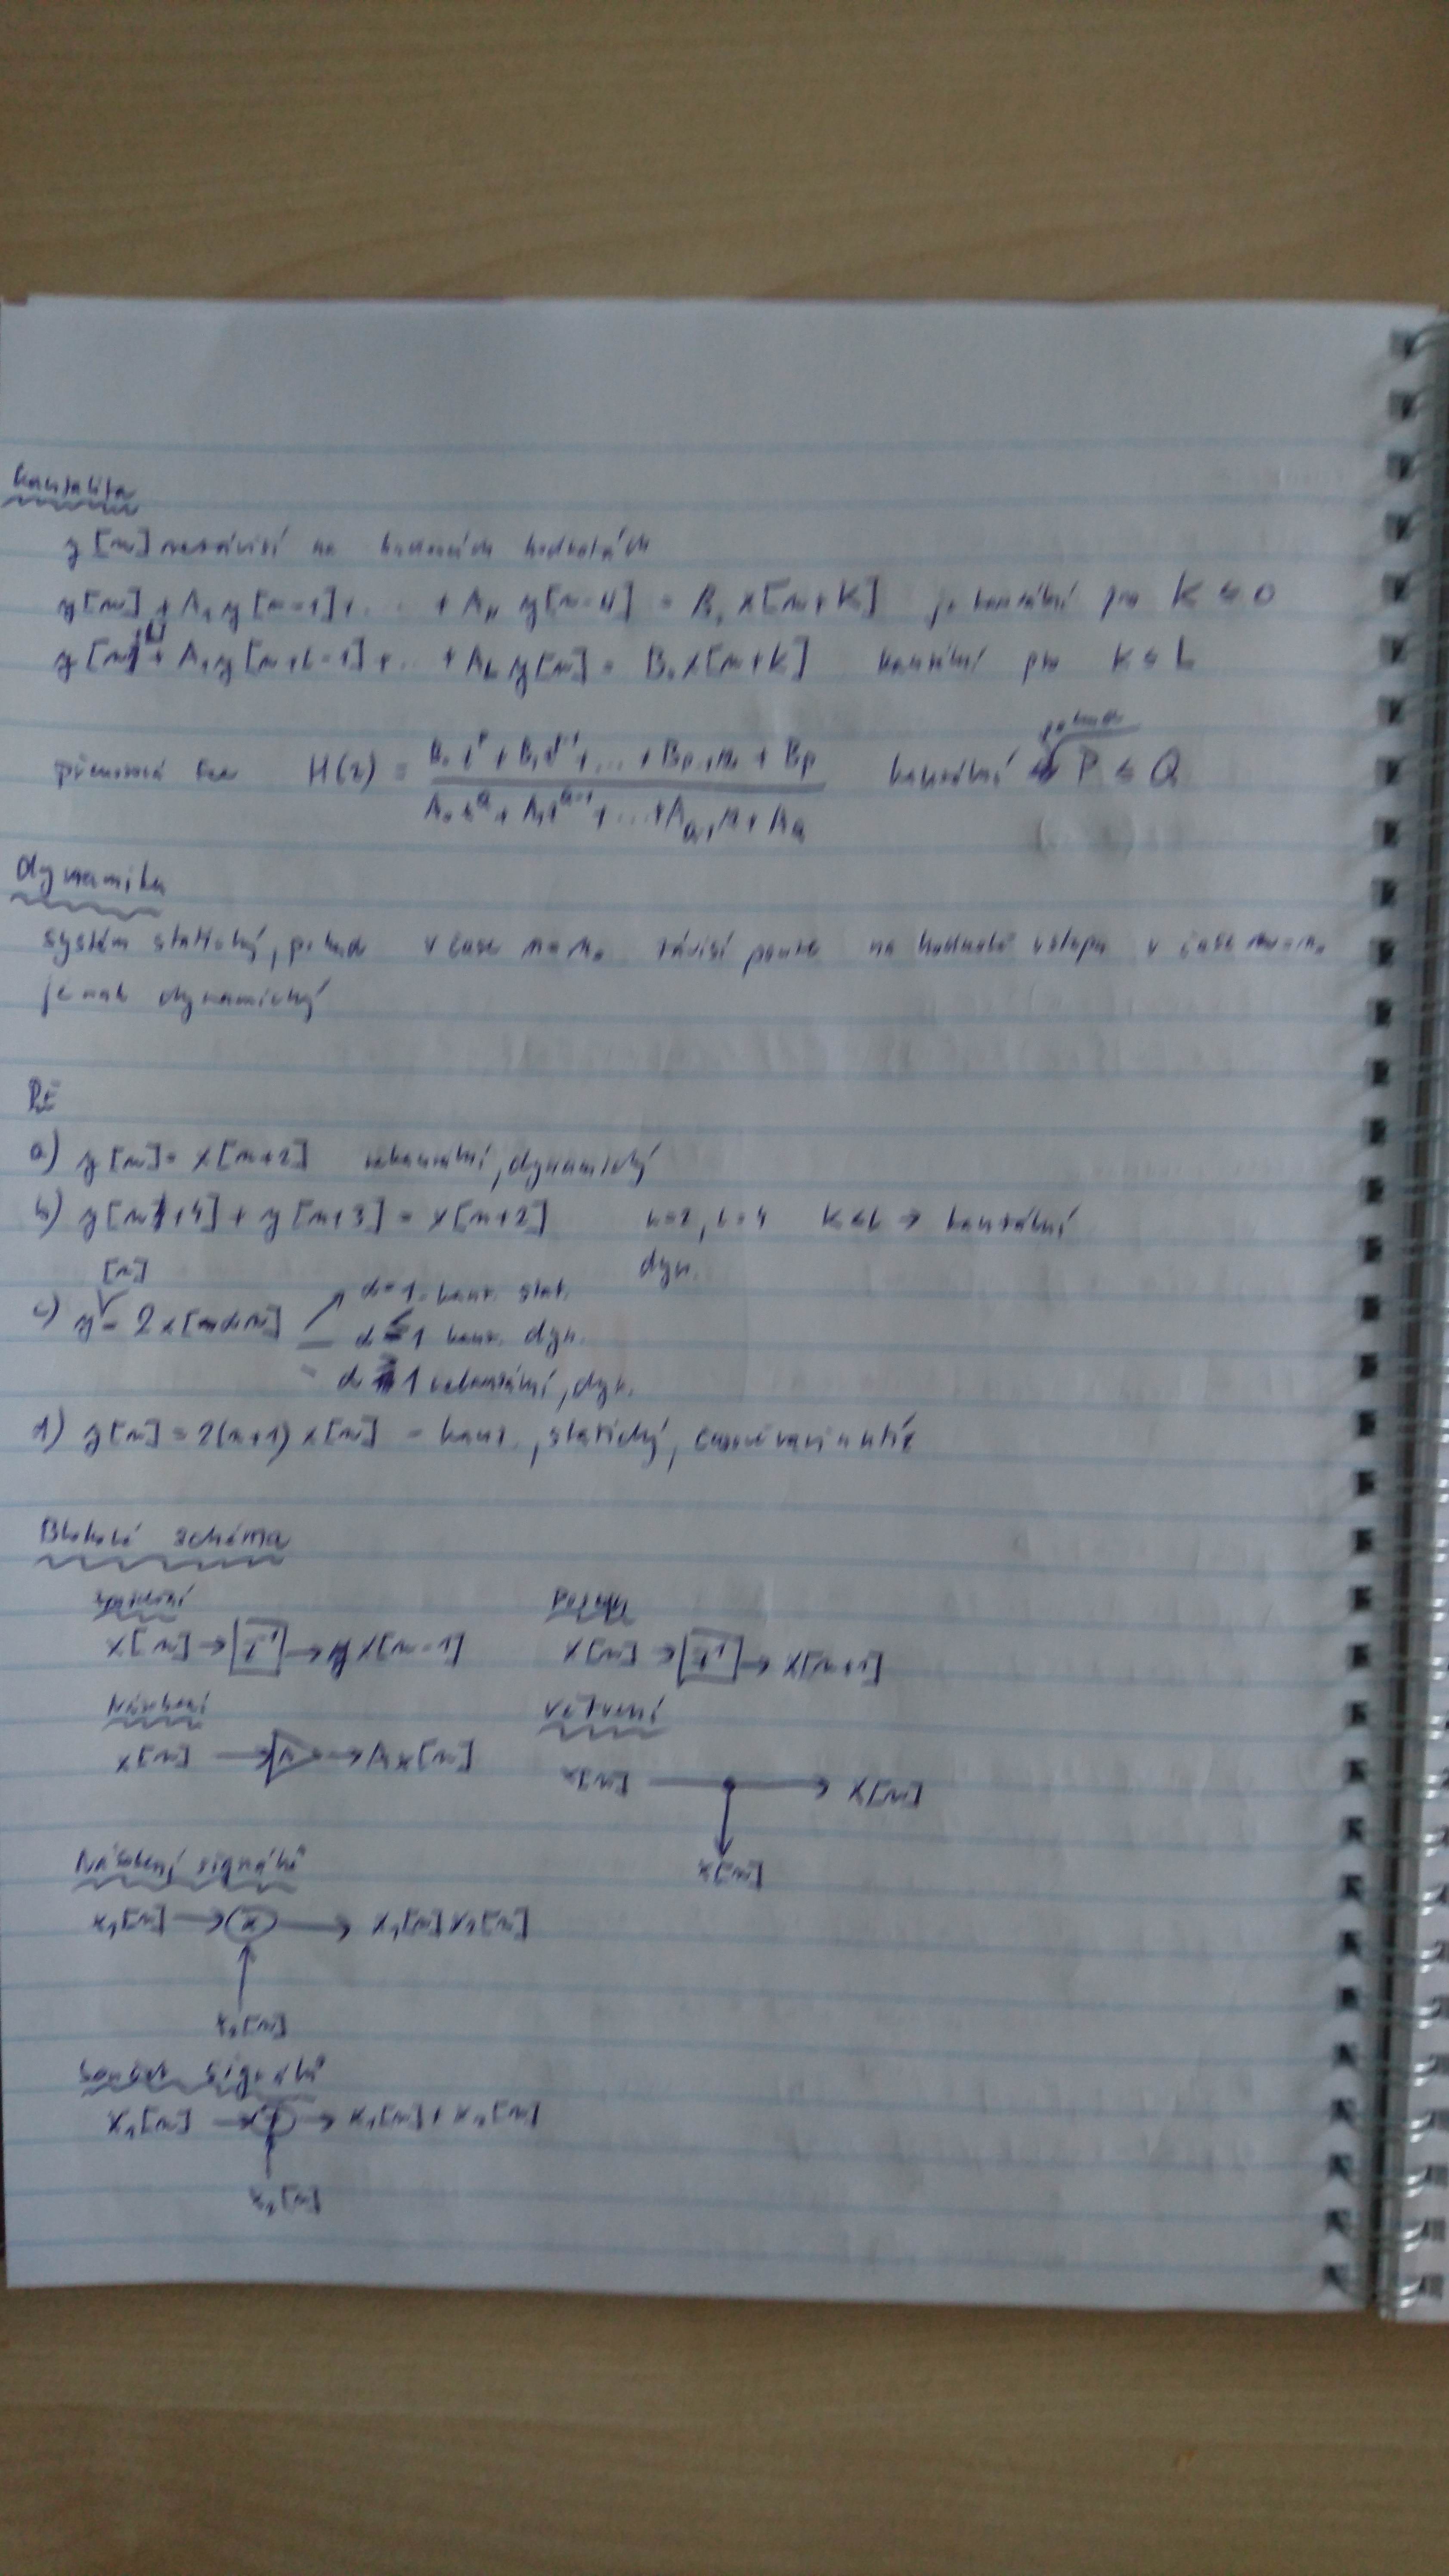 kauzalita
y[n] nezávisí na budoucích hodnotách
y[n] + A₁y[n-1]+... + A_N y[n-N] = B₀ x[n+K] je kauzální pro K ≤ 0
y[n+L] + A₁y[n+L-1]+... + A_L y[n] = B₀ x[n+K] kauzální pro K ≤ L
pokud
přenosová fce H(z) = kauzální P ≤ Q
dynamika
systém statický, pokud v čase n=n₀ závisí pouze na hodnotě vstupu v čase n=n₀
jinak dynamický
Př
a) y[n] = x[n+2] nekauzální, dynamický
b) y[n+4] + y[n+3] = x[n+2] K=2, L=4 K≤L → kauzální
dyn.
[n]
α=1 kauz. stat.
c) y = 2x[αn]
α<1 kauz. dyn.
α>1 nekauzální, dyn.
d) y[n] = 2(n+1) x[n] = kauz., statický, časově variantní
Blokové schéma
zpoždění
x[n] → z⁻¹ → x[n-1]
x[n] → → x[n+1]
Větvení
x[n] → A → Ax[n]
x[n] → x[n]
x[n]
Násobení signálů
x₁[n] → x → x₁[n] x₂[n]
x₂[n]
Součet signálů
x₁[n] → + → x₁[n] + x₂[n]
x₂[n]